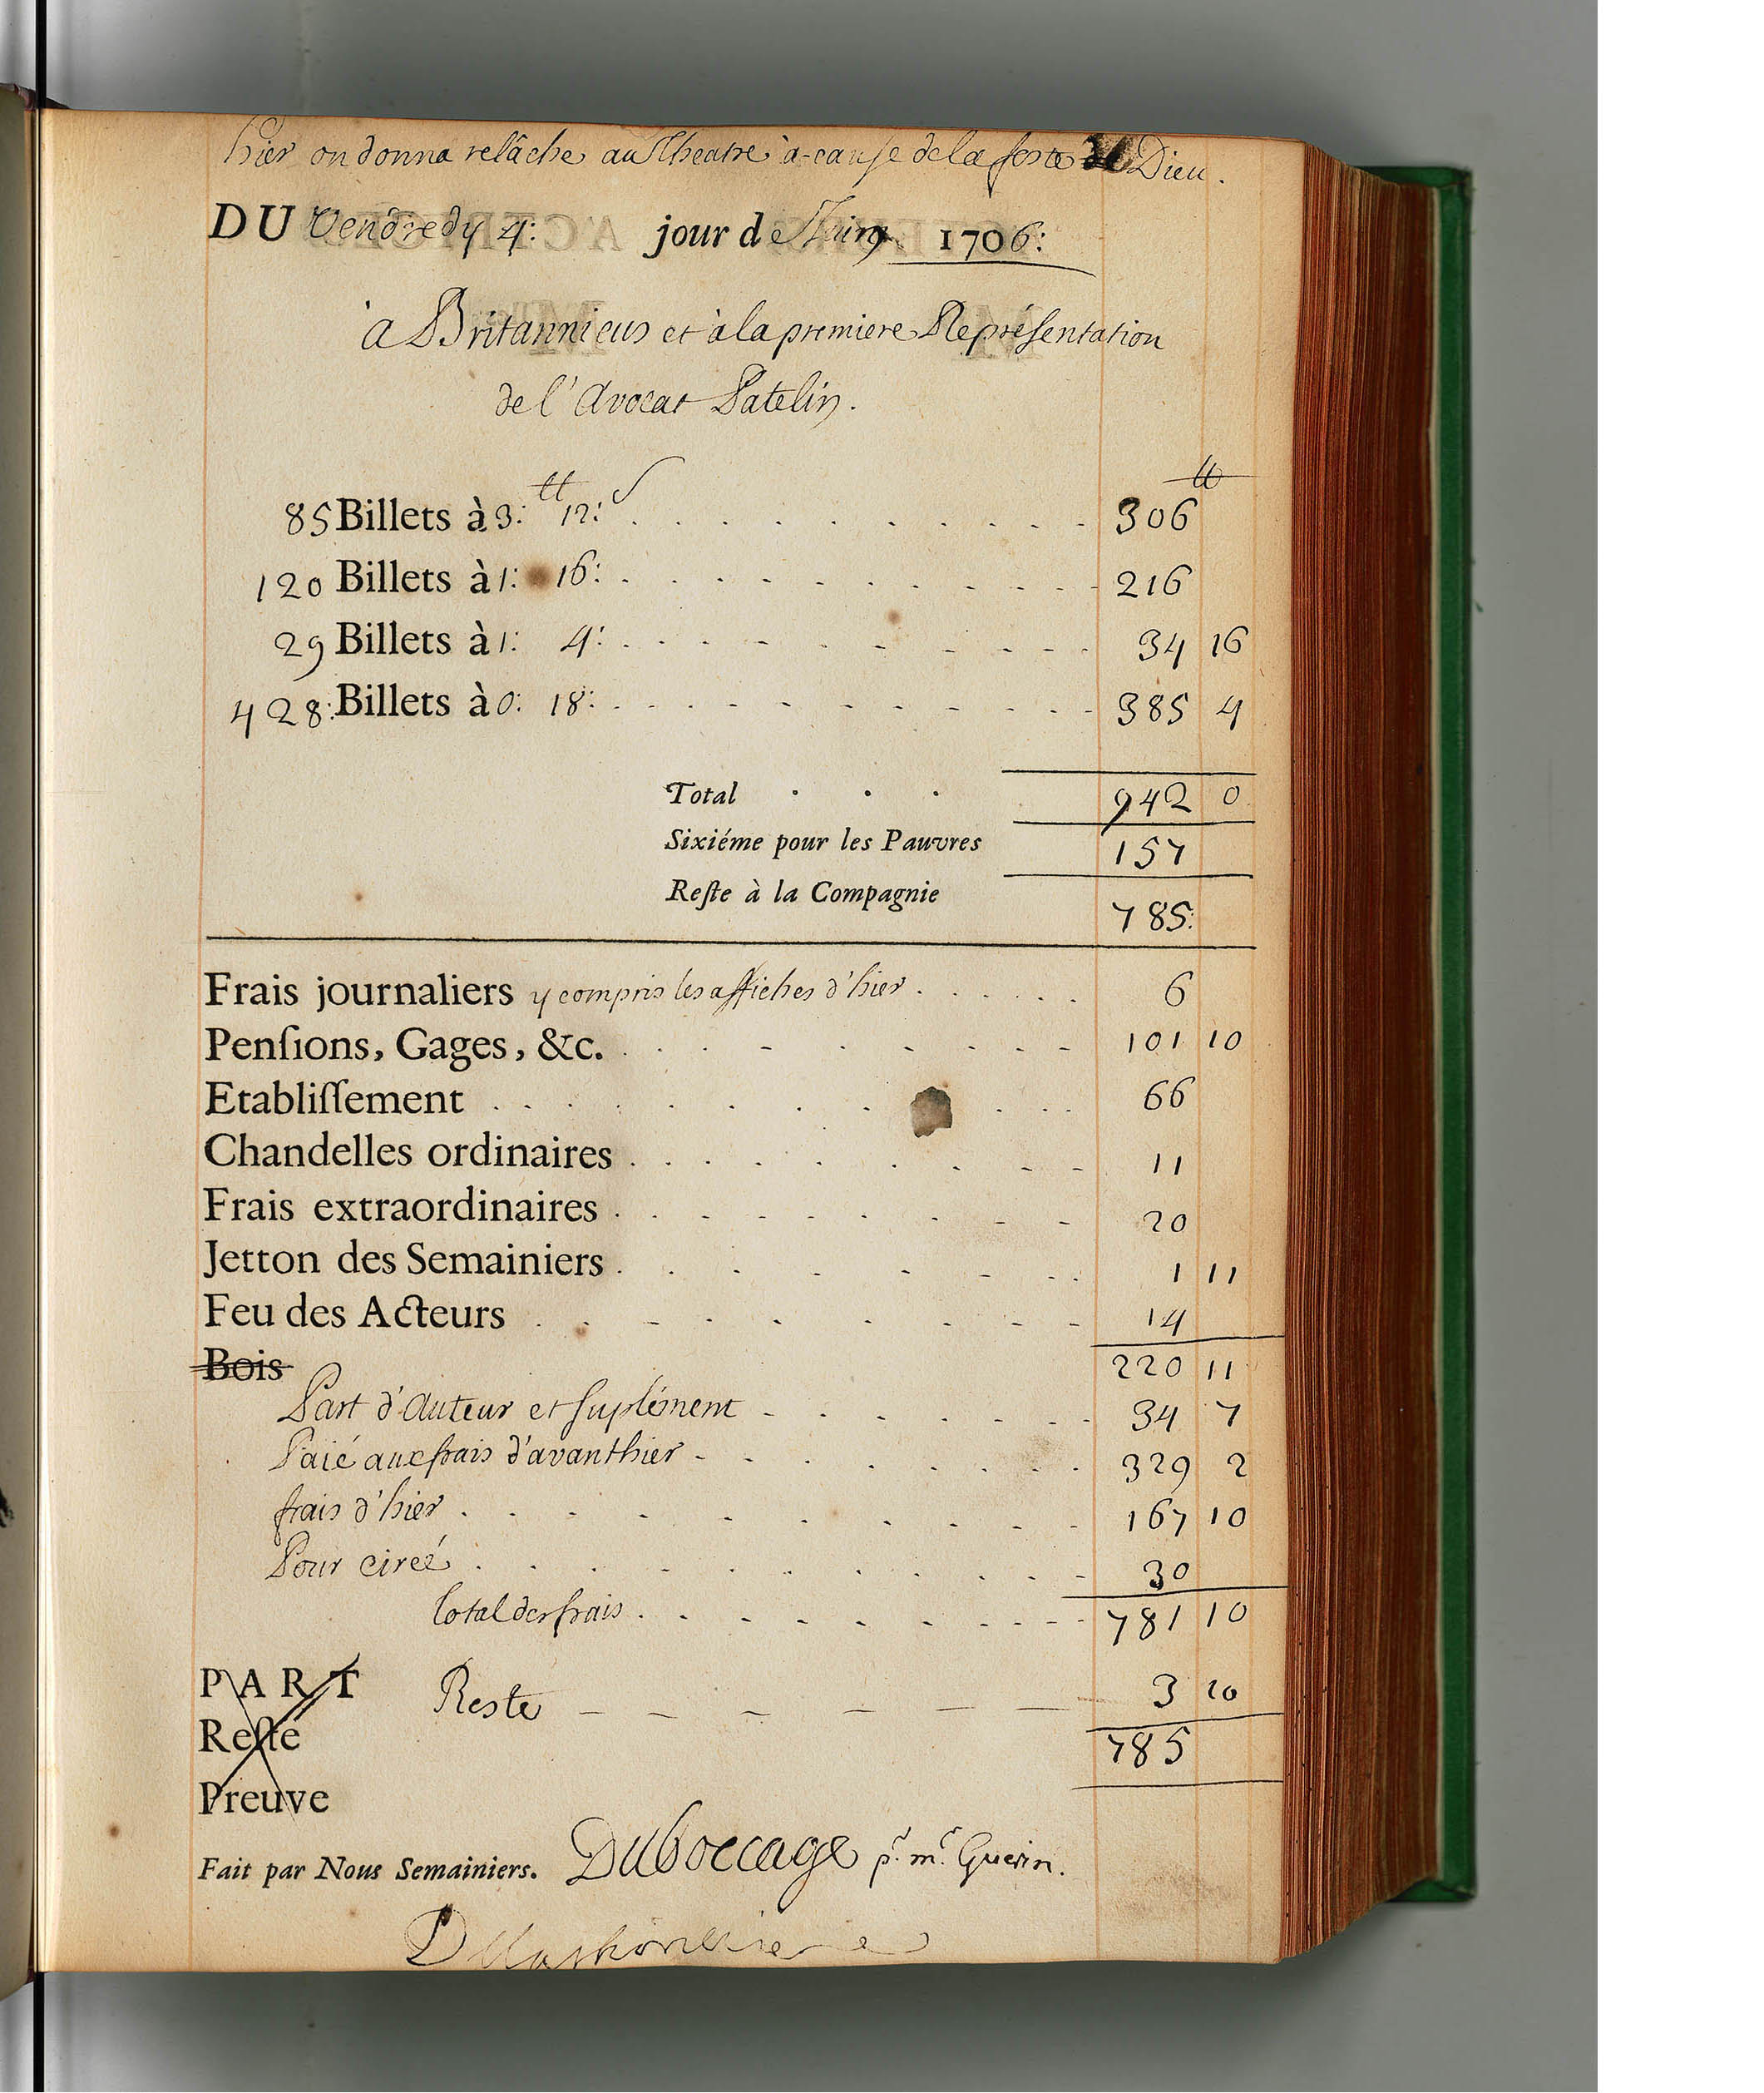 hier on donna relâche au Theatre à-cause de la feste Dieu.
DU Vendredy 4: jour de Juin 1706:
à Britannicus et à la premiere Représentation
de l'Avocat Patelin.
85 Billets à 3:ᵗᵗ 12:ˢ . . . . . . . . . . 306ᵗᵗ
120 Billets à 1: 16: . . . . . . . . . . 216
29 Billets à 1: 4: . . . . . . . . . . 34 16
428: Billets à 0: 18: . . . . . . . . . . 385 4
Total . . . 942 0
Sixiéme pour les Pauvres 157
Reſte à la Compagnie 785:
Frais journaliers y compris les affiches d'hier . . . . . . 6
Penſions, Gages, &c. . . . . . . . . . . 101 10
Etabliſſement . . . . . . . . . . 66
Chandelles ordinaires . . . . . . . . . . 11
Frais extraordinaires . . . . . . . . . 20
Jetton des Semainiers . . . . . . . . 1 11
Feu des Acteurs . . . . . . . . . . 14
Bois 220 11
Part d'Auteur et suplément . . . . . . . . 34 7
Paié aux frais d'avanthier . . . . . . . . 329 2
frais d'hier . . . . . . . . . . 167 10
Pour cireé . . . . . . . . . . 30
Total des frais . . . . . . . . . 781 10
PART Reste — — — — — — 3 10
Reſte 785
Preuve
Fait par Nous Semainiers. Duboccage pʳ. mʳ. Guerin.